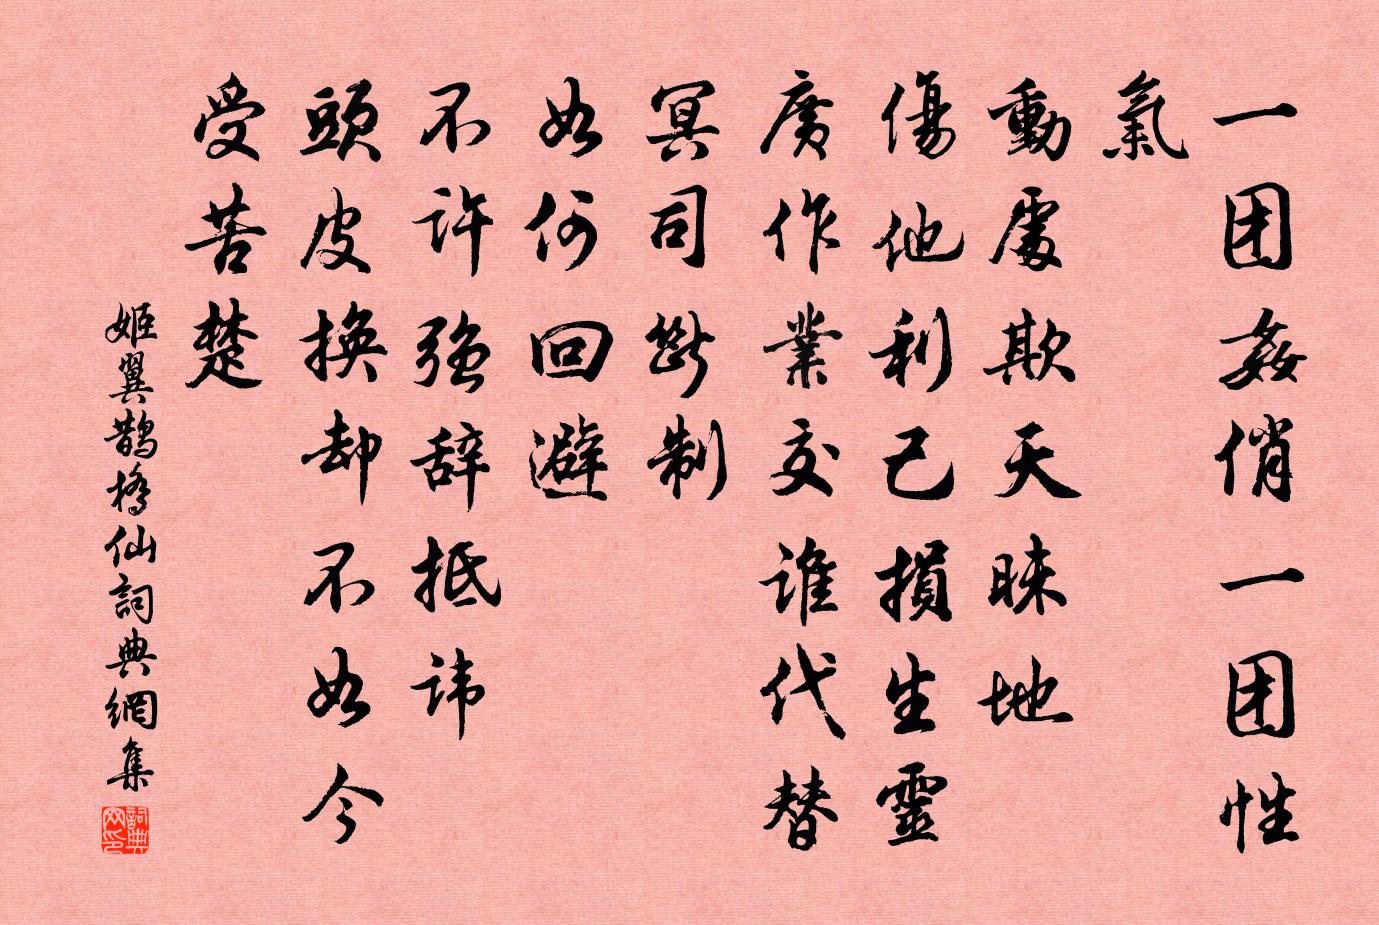 一团姦俏一团性
氣
動處欺天昧地
傷他利己損生靈
廣作業交谁代替
冥司斷制
如何回避
不许强辞抵讳
頭皮換却不如今
受苦楚
姬翼鵲橋仙詞典網集
詞典网印